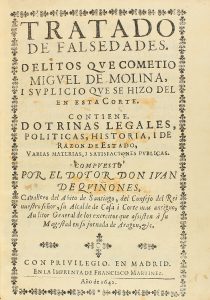 TRATADO
DE FALSEDADES.
DELITOS QVE COMETIO
MIGVEL DE MOLINA,
I SVPLICIO QVE SE HIZO DEL
EN ESTA CORTE.
CONTIENE
DOTRINAS LEGALES,
POLITICAS, HISTORIA, I DE
RAZON DE ESTADO,
VARIAS MATERIAS, I SATISFACIONES PVBLICAS.
COMPVESTO
POR EL DOTOR DON IVAN
DE QVIÑONES,
Cavallero del Abito de Santiago, del Consejo del Rei
nuestro señor, su Alcalde de Casa i Corte mas antiguo,
Auditor General de los exercitos que assisten á su
Magestad en su jornada de Aragon, &c.
CON PRIVILEGIO. EN MADRID.
EN LA IMPRENTA DE FRANCISCO MARTINEZ.
Año de 1642.